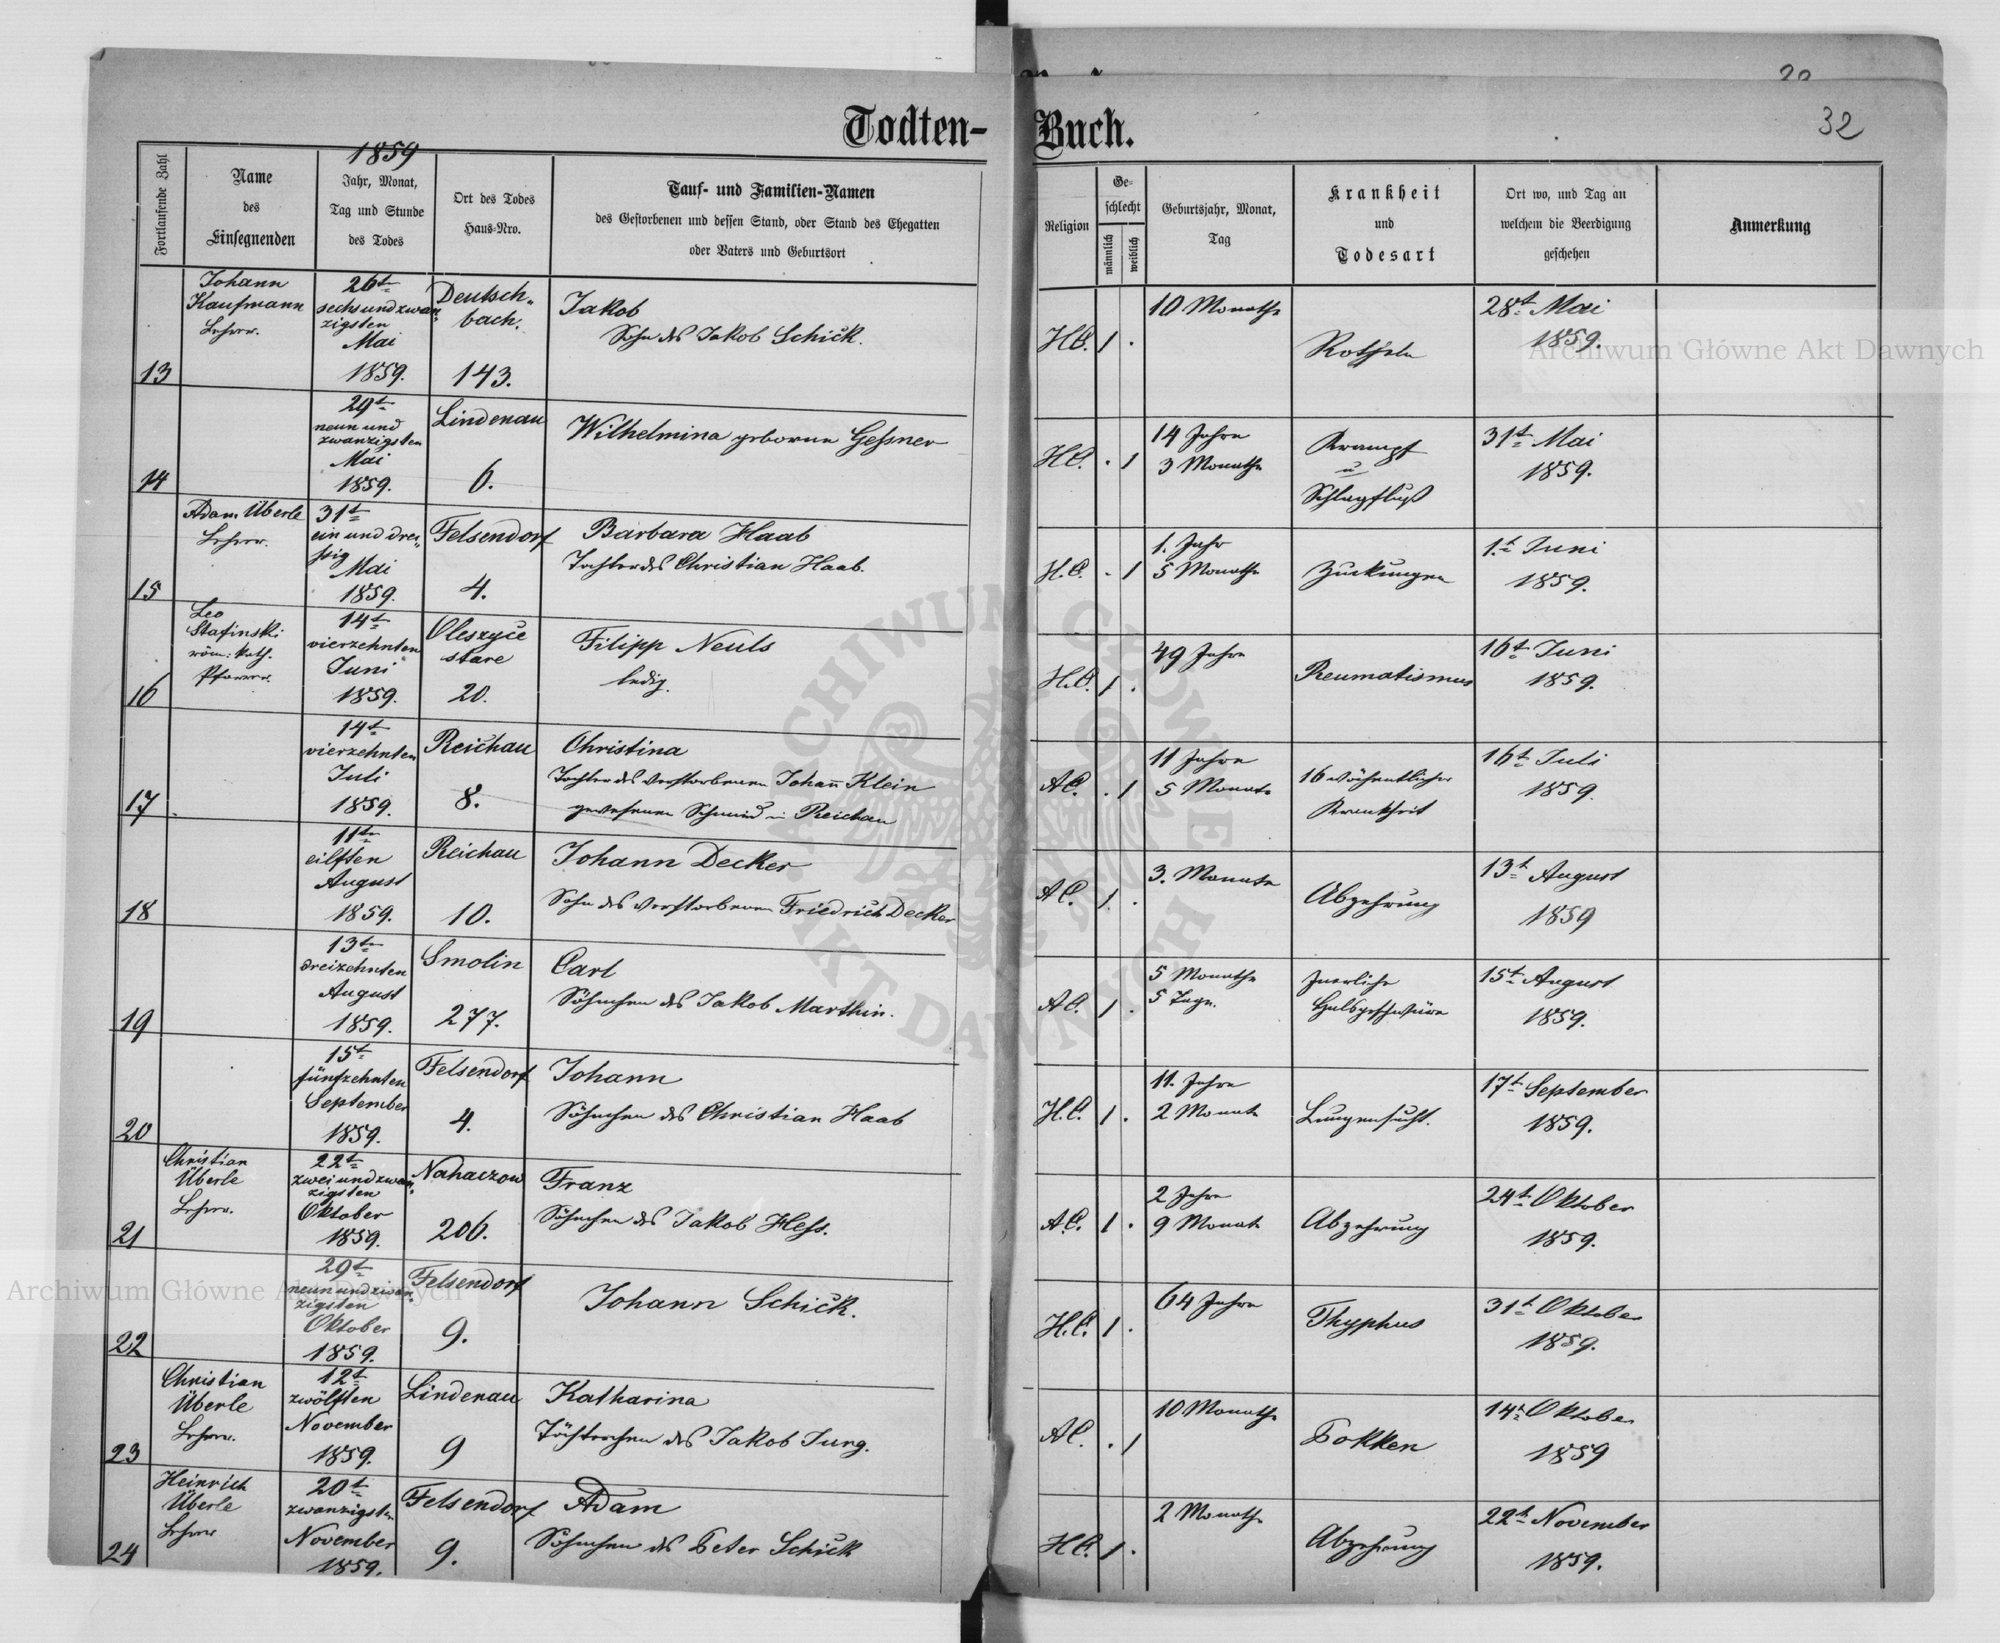 32
Todten- Buch.
1859
Fortlaufende Zahl
Name
des
Einsegnenden
Jahr, Monat,
Tag und Stunde
des Todes
Ort des Todes
Haus-Nro.
Tauf- und Familien-Namen
des Gestorbenen und dessen Stand, oder Stand des Ehegatten
oder Vaters und Geburtsort
Religion
Ge-
schlecht
männlich
weiblich
Geburtsjahr, Monat,
Tag
Krankheit
und
Todesart
Ort wo, und Tag an
welchem die Beerdigung
geschehen
Anmerkung
13
Johann
Kaufmann
Lehrer.
26t
sechsundzwan-
zigsten
Mai
1859.
Deutsch-
bach.
143.
Jakob
Sohn des Jakob Schick.
HC. 1 .
10 Monathe
Rotheln
28t Mai
1859.
14
29t
neun und
zwanzigsten
Mai
1859.
Lindenau
6.
Wilhelmina geborene Geßner
HC. . 1
14 Jahre
3 Monathe
Krampf
u
Schlagfluß
31t Mai
1859.
15
Adam Überle
Lehrer.
31t
ein und drei-
ßig
Mai
1859.
Felsendorf
4.
Barbara Haab
Tochter des Christian Haab.
H.C. . 1
1. Jahr
5 Monathe
Zuckungen
1.t Juni
1859.
16
Leo
Stafinski
röm: kath.
Pfarrer.
14t
vierzehnten
Juni
1859.
Oleszyce
stare
20.
Filipp Neuls
ledig.
H.C. 1 .
49 Jahre
Reumatismus
16t Juni
1859.
17
14t
vierzehnten
Juli
1859.
Reichau
8.
Christina
Tochter des verstorbenen Johann Klein
gewesenen Schmied in Reichau
AC. . 1
11 Jahre
5 Monate
16 wöchentlicher
Krankheit
16t Juli
1859.
18
11te
eilften
August
1859.
Reichau
10.
Johann Decker
Sohn des verstorbenen Friedrich Decker
AC. 1 .
3. Monate
Abzehrung
13t August
1859
19
13te
dreizehnten
August
1859.
Smolin
277.
Carl
Söhnchen des Jakob Marthin.
AC. 1 .
5 Monathe
5 Tage.
Inerliche
Halsgeschwüre
15t August
1859.
20
15t
fünfzehnten
September
1859.
Felsendorf
4.
Johann
Söhnchen des Christian Haab
H.C. 1 .
11. Jahre
2 Monate
Lungensucht.
17t September
1859.
21
Christian
Überle
Lehrer.
22t
zwei und zwan-
zigsten
Oktober
1859.
Nahaczow
206.
Franz
Söhnchen des Jakob Hess.
A.C. 1 .
2 Jahre
9 Monate
Abzehrung
24t Oktober
1859.
22
29t
neun und zwan-
zigsten
Oktober
1859.
Felsendorf
9.
Johann Schick.
H.C. 1 .
64 Jahre
Thyphus
31t Oktober
1859.
23
Christian
Überle
Lehrer.
12t
zwölften
November
1859.
Lindenau
9
Katharina
Töchterchen des Jakob Jung.
AC. . 1
10 Monathe
Pokken
14t Oktober
1859
24
Heinrich
Überle
Lehrer
20t
zwanzigsten
November
1859.
Felsendorf
9.
Adam
Söhnchen des Peter Schick
HC. 1 .
2 Monathe
Abzehrung
22t November
1859.
Archiwum Główne Akt Dawnych
Archiwum Główne Akt Dawnych
ARCHIWUM GŁÓWNE
AKT DAWNYCH